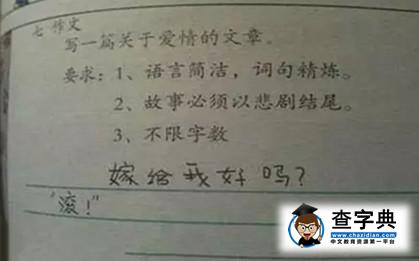 七 作文
写一篇关于爱情的文章。
要求：1、语言简洁，词句精炼。
2、故事必须以悲剧结尾。
3、不限字数
嫁给我好吗？
“滚！”
查字典
www.chazidian.com
中文教育资源第一平台